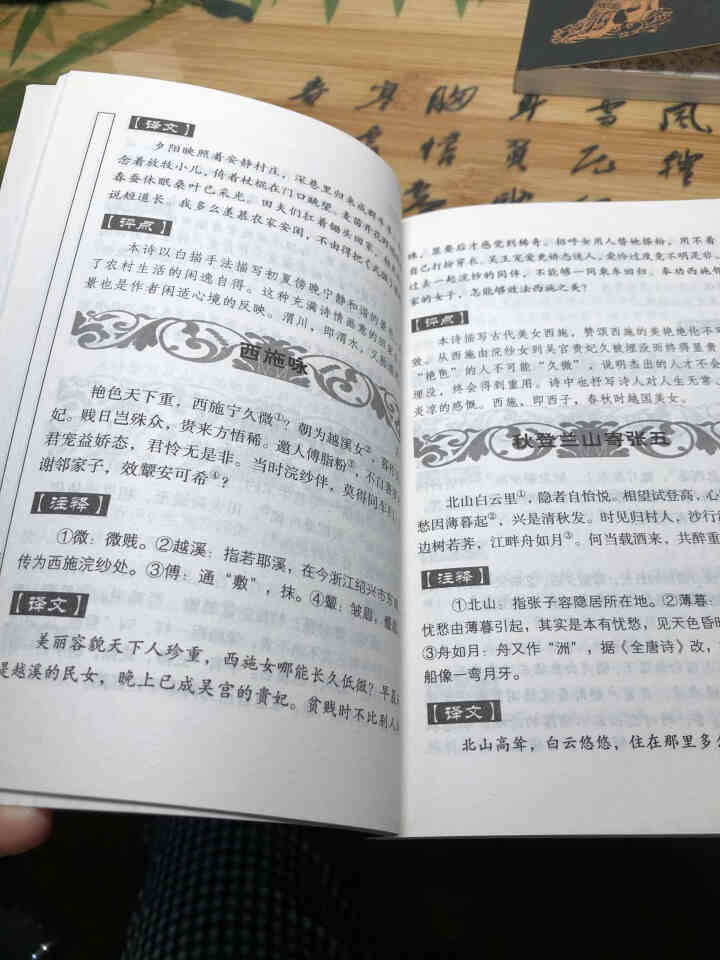 【译文】
夕阳映照着安静村庄，深巷里归来成群牛羊。
念着放牧小儿，倚着杖棍在门口眺望。麦苗开花
春蚕休眠桑叶已采光。田夫们扛着锄头回家，
说短道长。我多么羡慕农家安闲，不由得把《式微》
【评点】
本诗以白描手法描写初夏傍晚宁静和谐的
了农村生活的闲逸自得。这种充满诗情画意的田
景也是作者闲适心境的反映。渭川，即渭水，又
西施咏
艳色天下重，西施宁久微①？朝为越溪女②，
妃。贱日岂殊众，贵来方悟稀。邀人傅脂粉③，不自
君宠益娇态，君怜无是非。当时浣纱伴，莫得同车
谢邻家子，效颦安可希④？
【注释】
①微：微贱。②越溪：指若耶溪，在今浙江绍兴市东南，
传为西施浣纱处。③傅：通“敷”，抹。④颦：皱眉，
【译文】
美丽容貌天下人珍重，西施女哪能长久低微？早晨
是越溪的民女，晚上已成吴宫的贵妃。贫贱时不比别人
殊，显要后才感觉到稀奇。招呼女用人替她搽粉，用不着
自己打扮穿衣。吴王宠爱更娇态迷人，爱怜过度竟不明是非。
过去一起浣纱的同伴，不能够一同乘车回归。奉劝西施邻
家的女子，怎能够效法西施之美？
【评点】
本诗描写古代美女西施，赞颂西施的美艳绝伦不
效。从西施由浣纱女到吴宫贵妃久被埋没而终得显贵
“艳色”的人不可能“久微”，说明杰出的人才不会
埋没，终会得到重用。诗中也抒写诗人对人生无常
炎凉的感慨。西施，即西子，春秋时越国美女。
秋登兰山寄张五
北山白云里①，隐者自怡悦。相望试登高，心
愁因薄暮起②，兴是清秋发。时见归村人，沙行
边树若荠，江畔舟如月③。何当载酒来，共醉重
【注释】
①北山：指张子容隐居所在地。②薄暮：
忧愁由薄暮引起，其实是本有忧愁，见天色昏
③舟如月：舟又作“洲”，据《全唐诗》改，
船像一弯月牙。
【译文】
北山高耸，白云悠悠，住在那里多